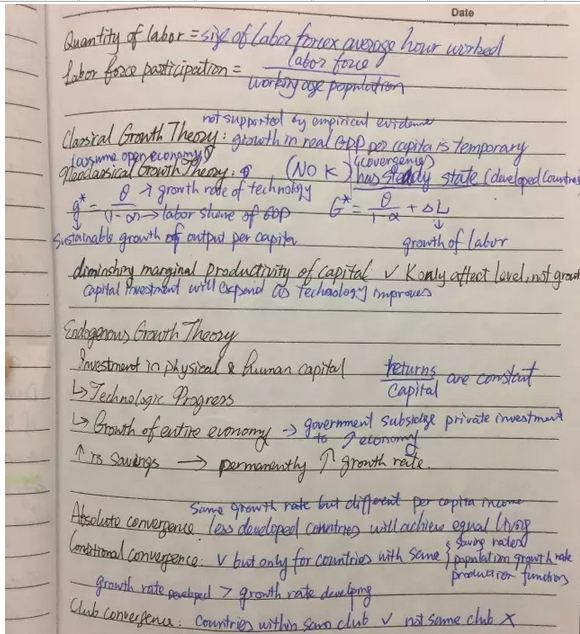 Date
Quantity of labor = size of labor force x average hour worked
Labor force participation = labor force / working age population
not supported by empirical evidence
Classical Growth Theory: growth in real GDP per capita is temporary
(assume open economy)
Neoclassical Growth Theory: (NO K) (covergence) has steady state (developed Countries
g* = θ / (1-α) → growth rate of technology → labor share of GDP G* = θ / 1-α + ΔL
Sustainable growth of output per capita growth of labor
diminshing marginal productivity of capital ✓ K only affect level, not growth
capital investment will expend as technology improves
Endogenous Growth Theory
Investment in physical & human capital returns / capital are constant
↳ Technologic Progress
↳ Growth of entire economy → government subsidize private investment
to ↗ economy
↑ savings → permanently ↑ growth rate.
Same growth rate but different per capita income
Absolute convergence: less developed countries will achieve equal living
Conditional convergence: ✓ but only for countries with same { saving rates
population growth rate
production functions
growth rate developed > growth rate developing
Club convergence: Countries within same club ✓ not same club X